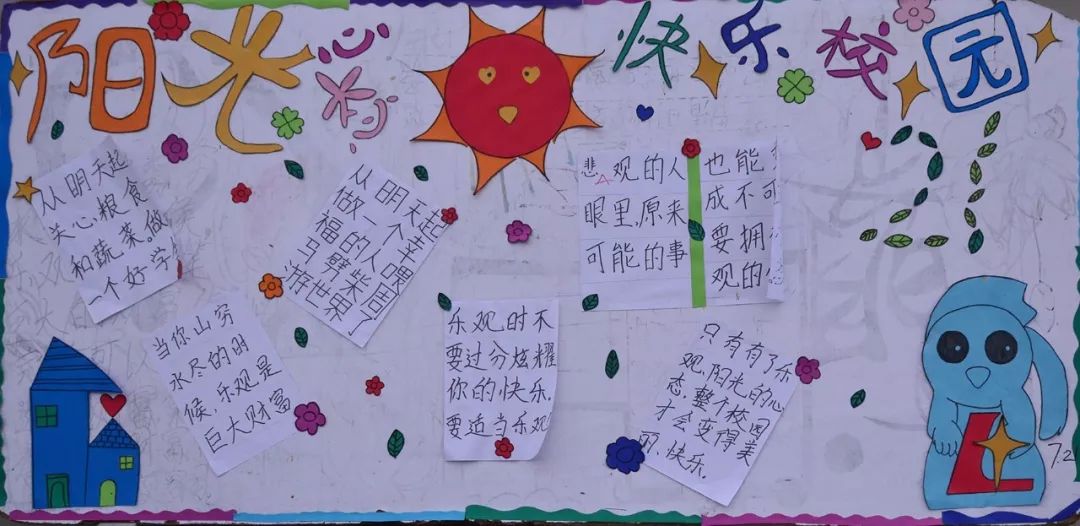 阳光心态
快乐校园
从明天起
关心粮食
和蔬菜。做
一个好学
从明天起
做一个幸
福的人喂
马劈柴周
游世界了
悲观的人
眼里,原来
可能的事
也能
成不可
要拥
观的
当你山穷
水尽的时
候,乐观是
巨大财富
乐观时不
要过分炫耀
你的快乐.
要适当乐观
只有有了乐
观,阳光的心
态,整个校园
才会变得美
丽,快乐.
7.2